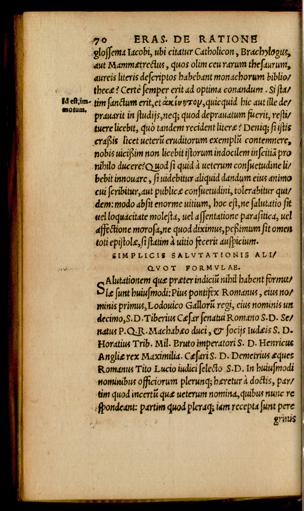 70 ERAS. DE RATIONE
glossema Iacobi, ubi citatur Catholicon, Brachylogus,
aut Mammætrectus, quos olim ceu rarum thesaurum,
aureis literis descriptos habebant monachorum biblio
thecæ? Certe semper erit ad optima conandum. Si sta/
Id est, im-
motum.
tim sanctum erit, et ἀκίνητον, quicquid hic aut ille de/
prauarit in studijs, neq; quod deprauatum fuerit, resti/
tuere licebit, quò tandem recident literæ? Deniq; si istis
crassis licet ueterū eruditorum exempli contemnere,
nobis uicissim non licebit istorum indoctem inscitiā pro
nihilo ducere? Quod si quid à ueterum consuetudine li/
bebit innouare, si uidebitur aliquid dandum eius animo
cui scribitur, aut publicæ consuetudini, tolerabitur qui/
dem: modo absit enorme uitium, hoc est, ne salutatio sit
uel loquacitate molesta, uel assentatione parasitica, uel
affectione morosa, ne quod diximus, pessimum sit omen
toti epistolæ, si statim à uitio fecerit auspicium.
SIMPLICIS SALVTATIONIS ALI/
QVOT FORMVLAE.
Salutationem quæ præter indiciū nihil habent formu/
læ sunt huiusmodi: Pius pontifex Romanus, eius no/
minis primus, Lodouico Gallorū regi, eius nominis un
decimo, S.D. Tiberius Cæsar senatui Romano S.D. Se/
natus P.Q.R. Machabæo duci, & socijs Iudæis S.D.
Horatius Trib. Mil. Bruto imperatori S.D. Henricus
Angliæ rex Maximilia. Cæsari S.D. Demetrius æques
Romanus Tito Lucio iudici selecto S.D. In huiusmodi
nominibus officiorum plerunq; hæretur à doctis, par/
tim quod incertū quæ ueterum nomina, quibus nunc re
spondeant: partim quod pleraq; iam recepta sunt pere
grinis